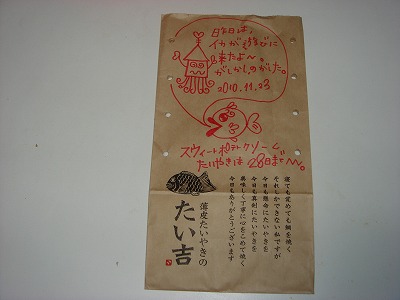 昨日は、
イカが遊びに
来たよ〜。
がしかし、のがした。
2010.11.23
スウィートポテトクリ〜ム
たいやきは28日まで〜。
寝ても覚めても鯛を焼く
それしかできない私ですが
今日も懸命にたいやきを
今日も真剣にたいやきを
美味しく丁寧に心をこめて焼く
今日もありがとうございます
薄皮たいやきの
たい吉